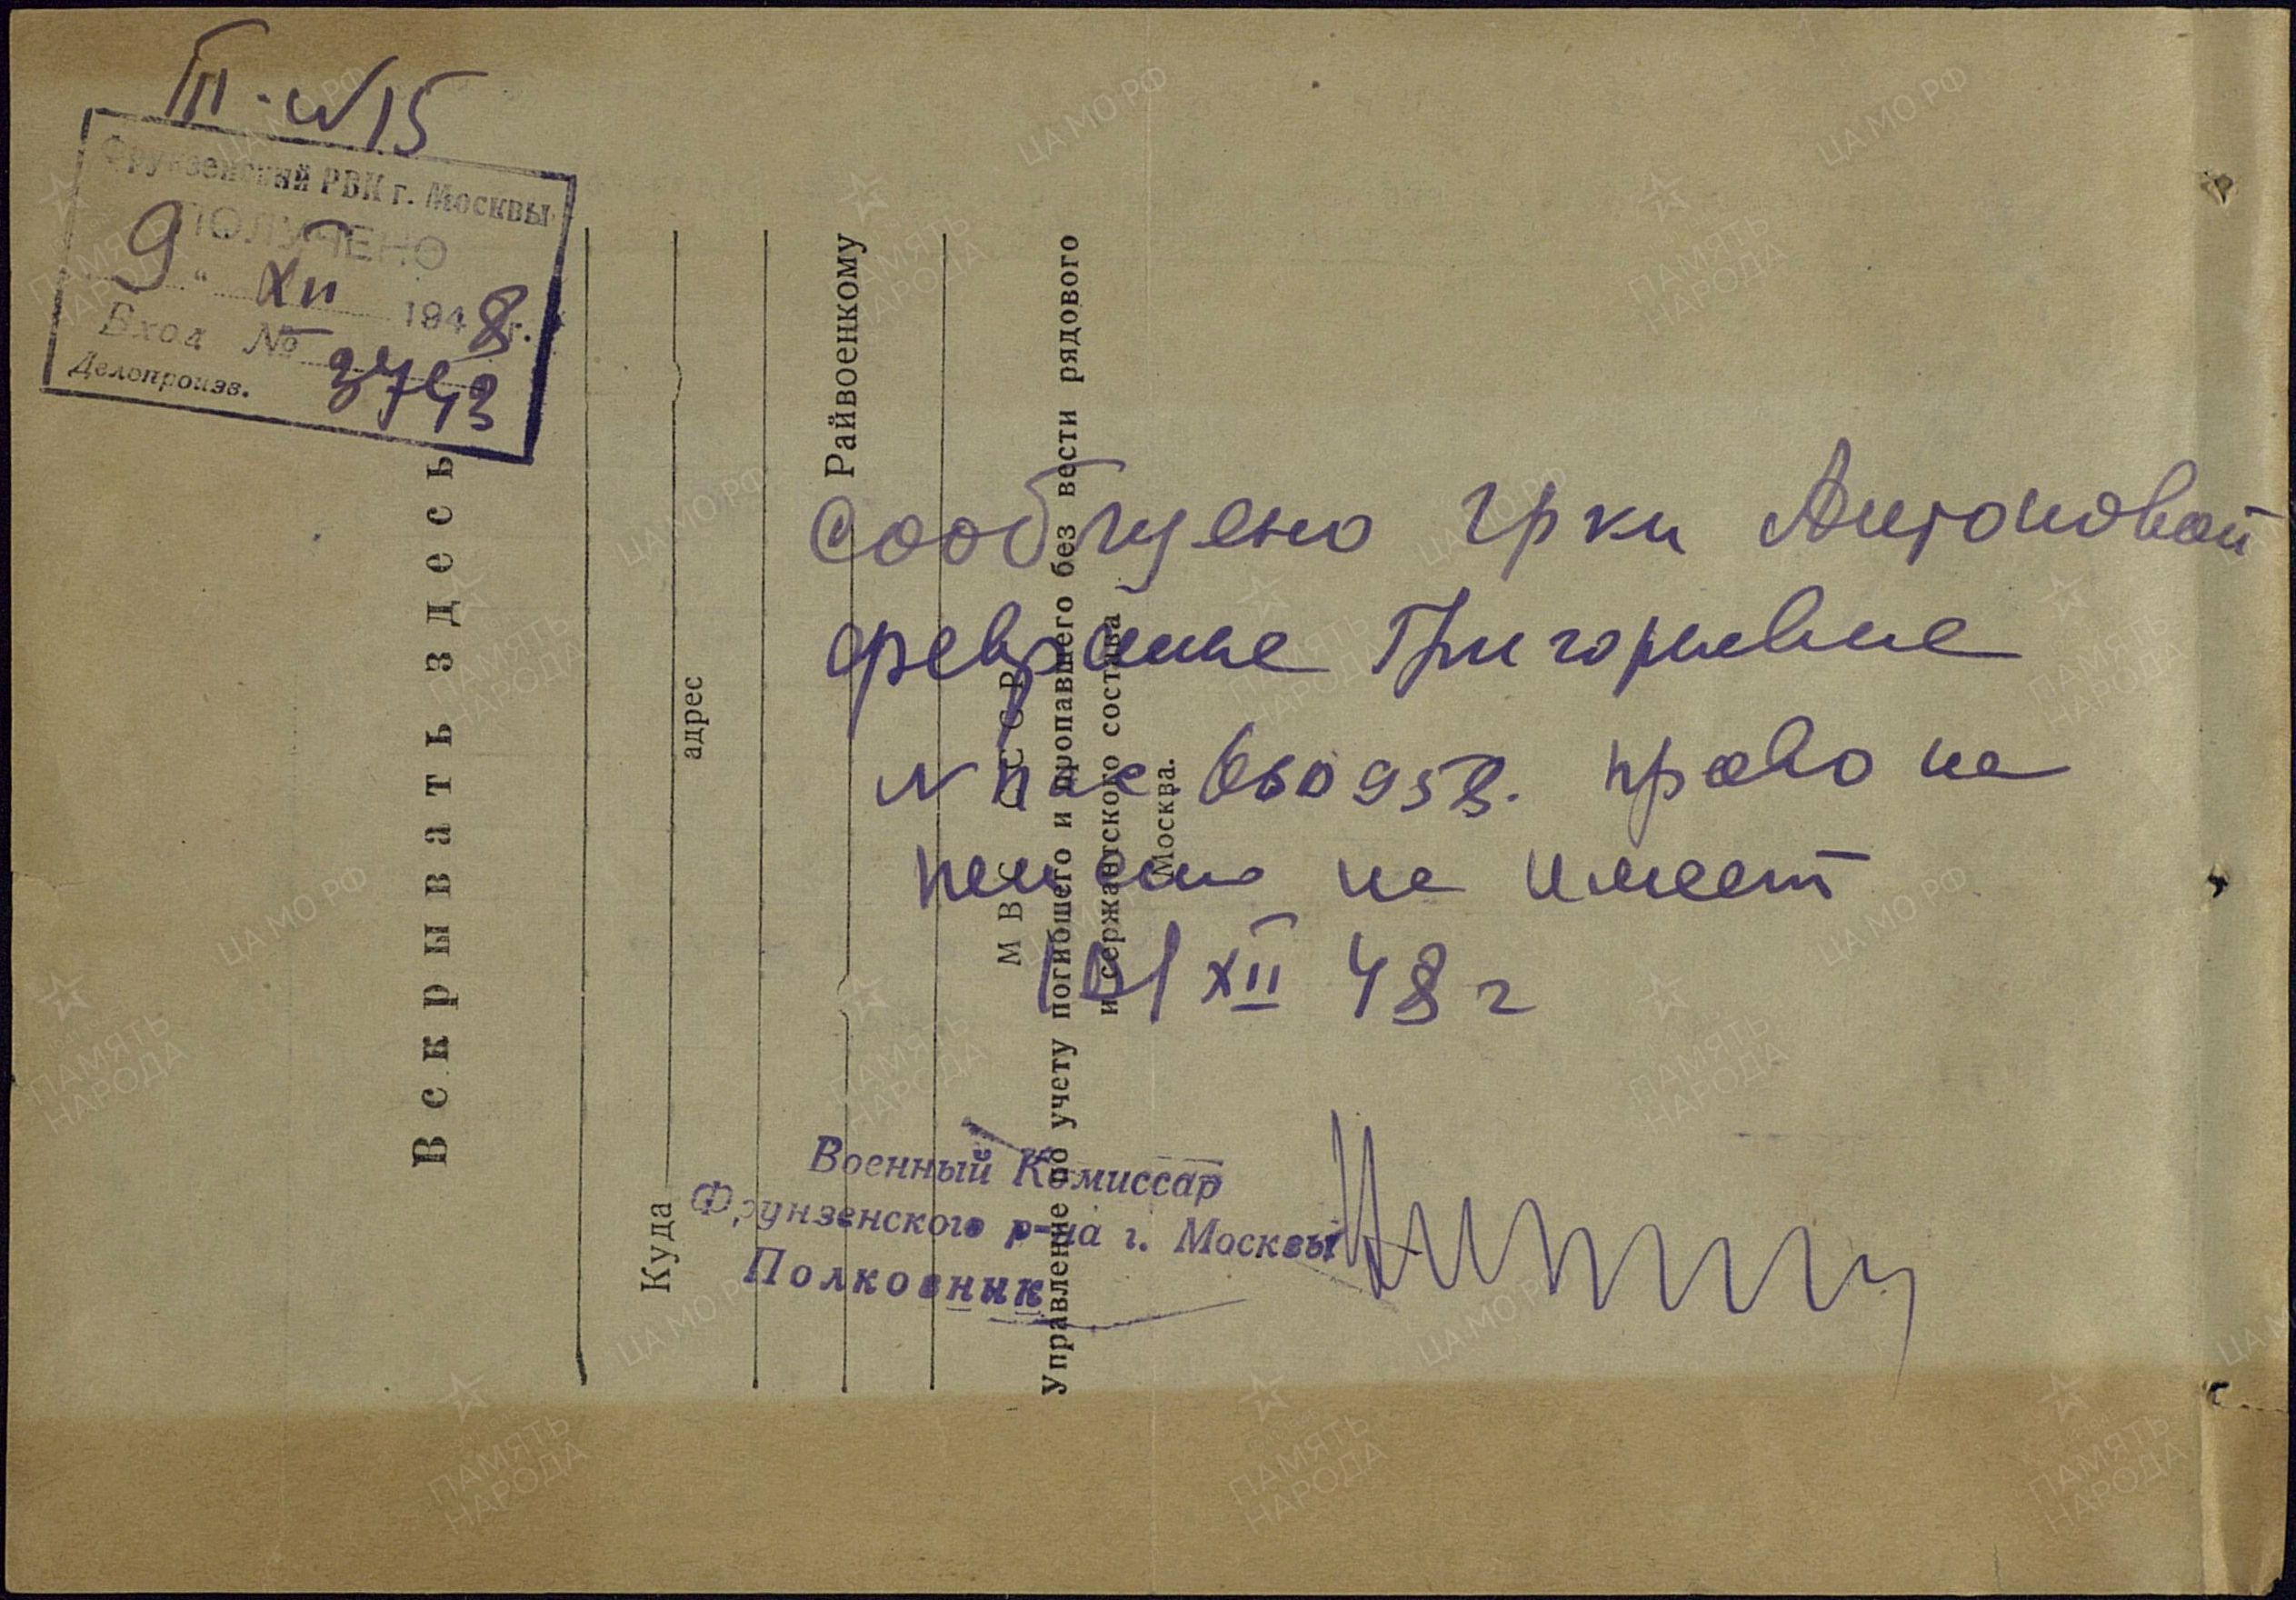 III - № 15
Фрунзенский РВК г. Москвы
ПОЛУЧЕНО
9 " XII 1948 г.
Вход № 3743
Делопроизв.
Вскрывать здесь
Куда
адрес
Райвоенкому
МВС СССР
Управление по учету погибшего и пропавшего без вести рядового
и сержантского состава
Москва.
Сообщено гр-ки Антоновой
Григорьевне
право на
пенсию не имеет
10/XII 48 г
Военный Комиссар
Фрунзенского р-на г. Москвы
Полковник
ЦА МО РФ
ПАМЯТЬ
НАРОДА